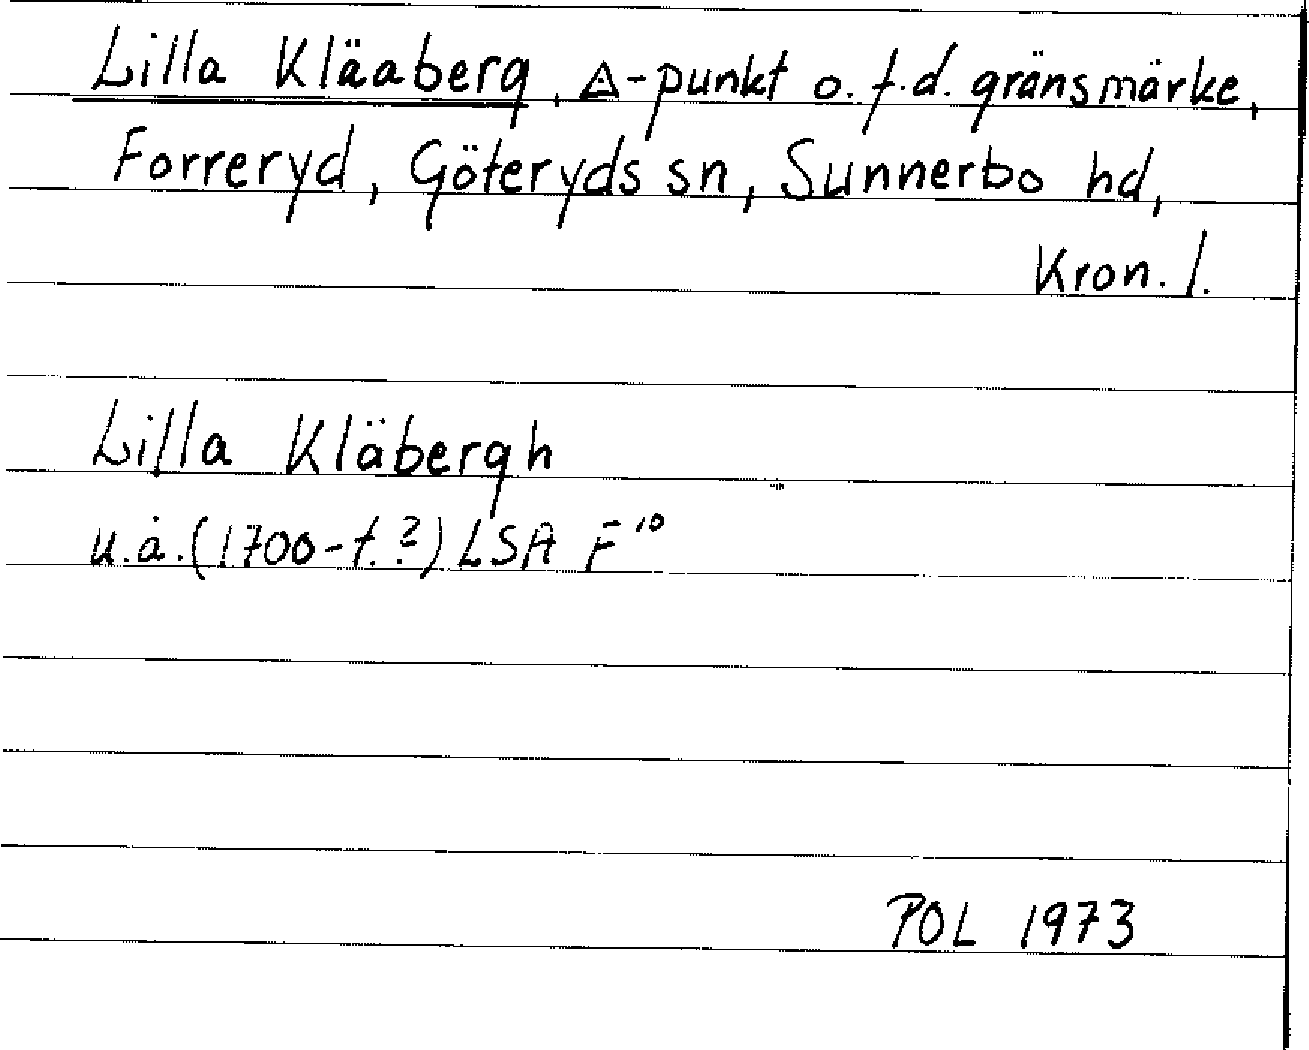 Lilla Kläaberg, △-punkt o. f.d. gränsmärke,
Forreryd, Göteryds sn, Sunnerbo hd,
Kron. l.
Lilla Kläbergh
u.å. (1700-t.?) LSA F¹⁰
POL 1973